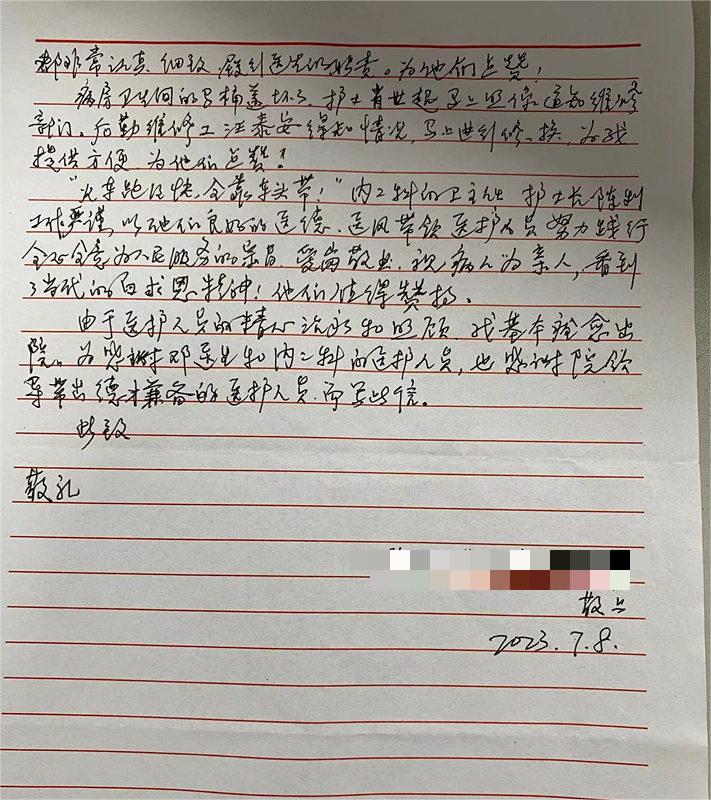 都非常认真细致，履到医生的职责。为他们点赞！
病房卫生间的马桶盖坏了，护士肖世超马上照像，通知维修
部门，后勤维修工汪泰安得知情况，马上进到修、换，为我
提供方便，为他们点赞！
"火车跑得快，全靠车头带！"内二科的卫主任 护士长陈利
工作严谨，以他们良好的医德、医风带领医护人员努力践行
全心全意为人民服务的宗旨，爱岗敬业，视病人为亲人，看到
了当代的白求恩精神！他们值得赞扬。
由于医护人员的精心治疗和照顾，我基本痊愈出
院。为感谢邓医生和内二科的医护人员，也感谢院领
导带出德才兼备的医护人员，而写此信。
此致
敬礼
敬上
2023.7.8.